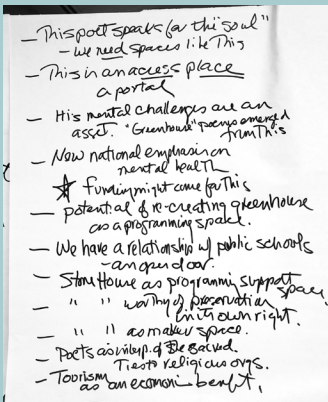 — This poet speaks for the "soul"
- we need spaces like This
— This is an access place
a portal
— His mental challenges are an
asset. "Greenhouse" poems emerged
from This
— New national emphasis on
mental health
☆ funding might come for This
— potential of re-creating greenhouse
as a programming space.
— We have a relationship w/ public schools
- an open door.
— Stone House as programming support
space.
— " " worthy of preservation
in its own right.
— " " as maker space.
— Poets as interp. of the sacred.
Ties to religious orgs.
— Tourism
as an economic benefit.